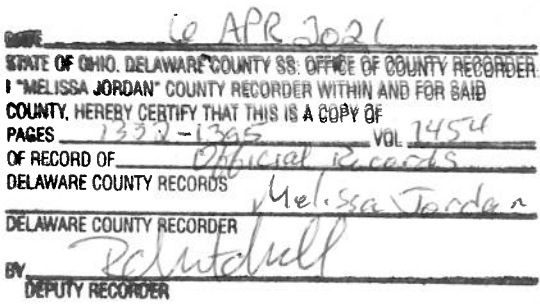 DATE 6 APR 2021
STATE OF OHIO. DELAWARE COUNTY SS: OFFICE OF COUNTY RECORDER
I "MELISSA JORDAN" COUNTY RECORDER WITHIN AND FOR SAID
COUNTY, HEREBY CERTIFY THAT THIS IS A COPY OF
PAGES 1332-1395 VOL 1454
OF RECORD OF Official Records
DELAWARE COUNTY RECORDS Melissa Jordan
DELAWARE COUNTY RECORDER
BY
DEPUTY RECORDER